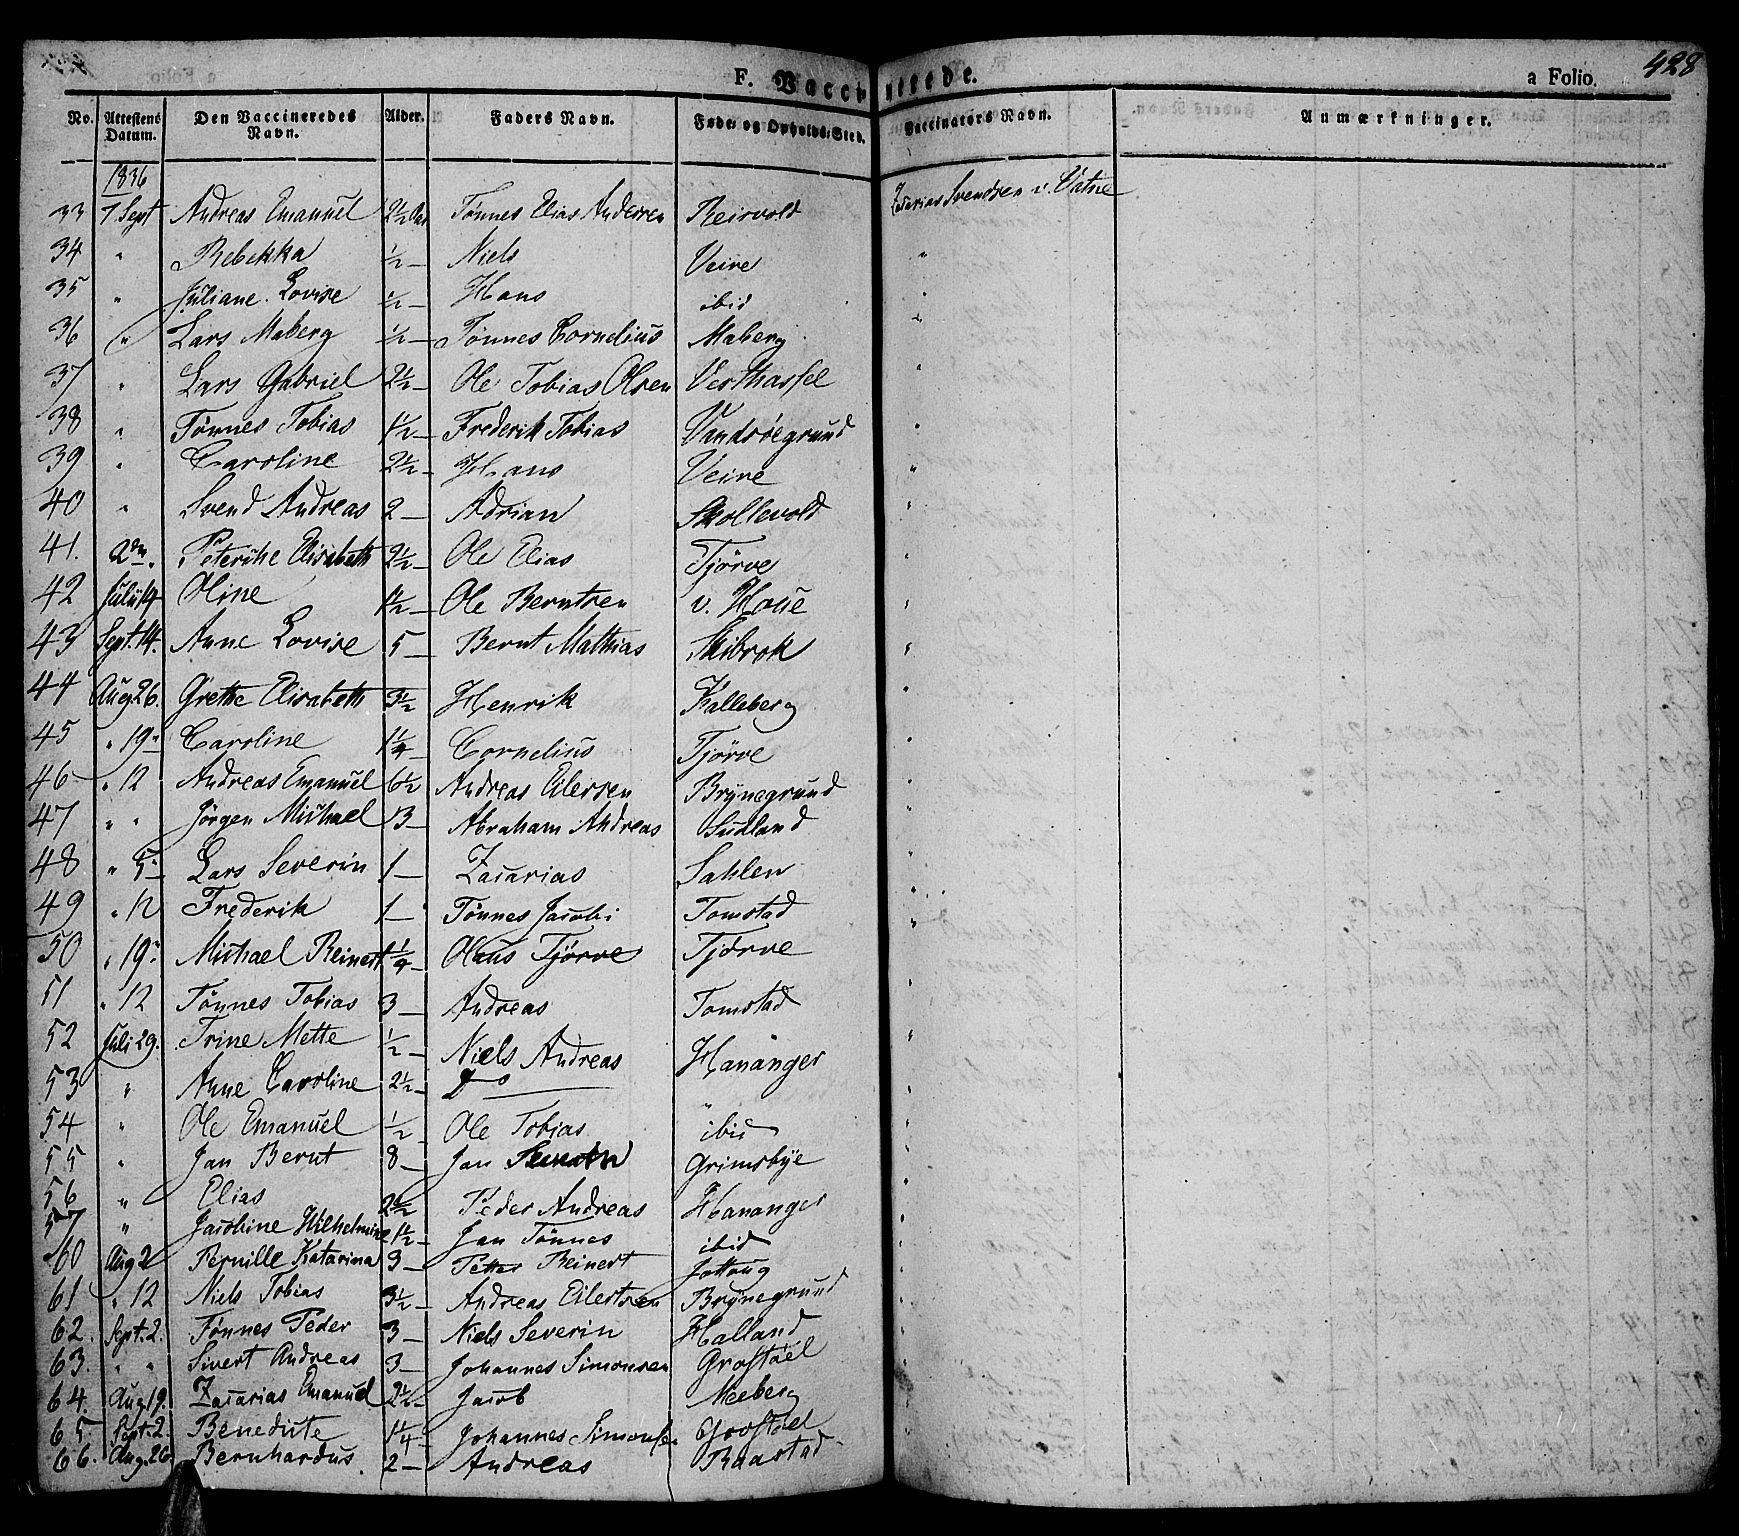 F. Vaccinerede. a Folio. 428
No. Attestens Datum. Den Vaccineredes Navn. Alder. Faders Navn. Føde- og Opholds-Sted. Vaccinators Navn. Anmærkninger.
1836
33 7 Sept Andreas Emanuel 2½ Aar Tønnes Elias Andersen Reirvold Zacarias Svendsen v. Vatne
34 " Rebekka ½ — Niels Veire "
35 " Juliane Lovise ½ — Hans ibid "
36 " Lars Maberg ½ — Tønnes Cornelius Maberg "
37 " Lars Gabriel 2½ — Ole Tobias Olsen Vesthassel "
38 " Tønnes Tobias 1½ — Frederik Tobias Vandsøegrund "
39 " Caroline 2½ — Hans Veire "
40 " Svend Andreas 2 — Adrian Skollevold "
41. 2den. Peterike Elisabeth 2½ — Ole Elias Tjörve "
42 Juli 14 Oline 1½ — Ole Berntsen v. Houe "
43 Sept. 14. Anne Lovise 5 — Bernt Mathias Skibrok "
44 Aug. 26. Grethe Elisabeth 3½ Henrik Kalleberg "
45 " 19" Caroline 1¼ Cornelius Tjörve "
46 " 12 Andreas Emanuel 6½ Andreas Eilersen Brynegrund "
47 " " Jörgen Michael 13 — Abraham Andreas Sudland "
48 " 5" Lars Severin 1 — Zacarias Sahlen "
49 " 12 Frederik 1 — Tønnes Jacobi Tomstad "
50 " 19" Michael Reinert ¼ — Olaus Tjörve Tjørve "
51 " 12 Tönnes Tobias 3 — Andreas Tomstad "
52 Juli 29. Trine Mette ½ — Niels Andreas Hananger "
53 " Anne Caroline 2½ — Do — "
54 " Ole Emanuel ½ — Ole Tobias ibid "
55 " Jan Bernt 8 — Jan Grimsbye "
56 " Elias 2½ Peder Andreas Hananger "
57 " Jacobine Wilhelmine 1½ — Jan Tønnes ibid "
60 Aug 2 Pernille Katarina 3 — Petter Reinert Jottoug "
61 " 12 Niels Tobias 3½ — Andreas Eilertsen Brynegrund "
62. Sept. 2. Tønnes Peder 3 — Niels Severin Halland "
63. " " Sivert Andreas 3 — Johannes Simonsen Grostöel "
64. Aug 19. Zacarias Emanuel 2½ — Jacob Meeberg "
65. Sept. 2. Benedicte 1¼ — Johannes Simonsen Grostöel "
66. Aug. 26. Bernhardus 2 — Andreas Baastad "